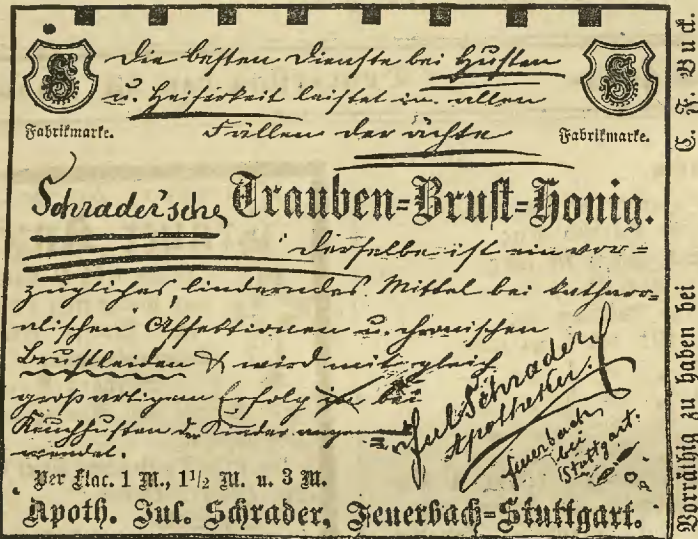 Die besten Dienste bei Husten
u. Heiserkeit leistet in allen
Fabrikmarke. Fällen der ächte Fabrikmarke.
Schrader'sche Trauben=Brust=Honig.
Derselbe ist ein vor=
zügliches, linderndes Mittel bei katharr=
alischen Affektionen u. chronischen
Brustleiden & wird mit gleich
großartigem Erfolg bei
Keuchhusten der Kinder angewendet.
wendet.
Jul Schrader
Apotheker.
Feuerbach
bei
Stuttgart.
Per Flac. 1 M., 1 1/2 M. u. 3 M.
Apoth. Jul. Schrader, Feuerbach=Stuttgart.
Vorräthig zu haben bei